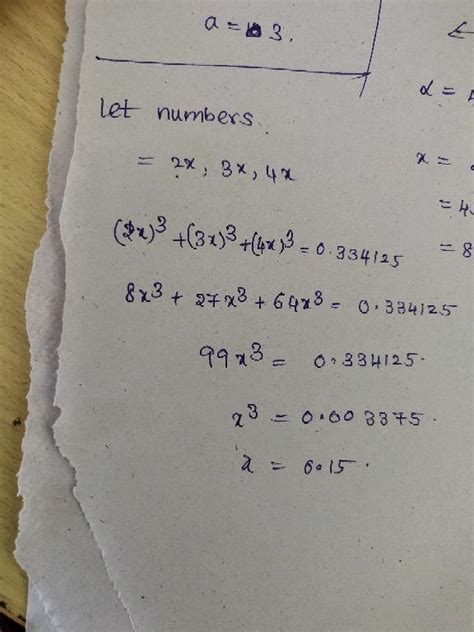 a = 3.
let numbers
= 2x, 3x, 4x
(2x)³ + (3x)³ + (4x)³ = 0.334125
8x³ + 27x³ + 64x³ = 0.334125
99x³ = 0.334125.
x³ = 0.003375.
x = 0.15.
α =
x =
= 4.
= 8